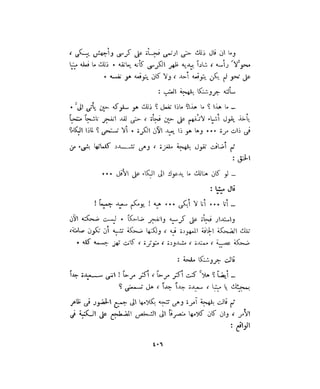 وما ان قال ذلك حتى ارتمى فجـأة على كرسى وأجهش يبـكى ،
محولا رأسه ، شادا بيديه ظهر الكرسى كأنه يعانقه • ذلك ما فعله ميتيا
على نحو لم يكن يتوقعه أحد ، ولا كان يتوقعه هو نفسه •
سألته جروشنكا بلهجة العتب :
ـ ما هذا ؟ ما هذا؟ ماذا تفعل ؟ ذلك هو سلوكه حين يأتى الىَّ •
يأخذ يقول أشياء لا تفهم على حين فجأة ، حتى لقد انفجر ناشجاً منتحباً
فى ذات مرة ••• وها هو ذا يعيد الآن الكرة • ألا تستحى ؟ لماذا البكاء؟
ثم أضافت تقول بلهجة ملغزة ، وهى تشـــدد كلماتها بشىء من
الحنق :
ـ لو كان هنالك ما يدعوك الى البكاء على الأقل •••
قال ميتيا :
ـ أنا ••• أنا لا أبكى ••• هيه ! يومكم سعيد جميعاً !
واستدار فجأة على كرسيه وانفجر ضاحكاً • ليست ضحكته الآن
تلك الضحكة الجافة المعهودة فيه ، ولكنها ضحكة تشبه أن تكون صامتة،
ضحكة عصبية ، ممتدة ، مشدودة ، متوترة ، كانت تهز جسمه كله •
قالت جروشنكا ملحة :
ـ أيضاً ؟ هلاَّ كنت أكثر مرحاً ، أكثر مرحاً ! اننى ســـعيدة جداً
بمجيئك يا ميتيا ، سعيدة جداً جداً ، هل تسمعنى ؟
ثم قالت بلهجة آمرة وهى تتجه بكلامها الى جميع الحضور فى ظاهر
الأمر ، وان كان كلامها منصرفاً الى الشخص المضطجع على الــكنبة فى
الواقع :
٤٠٦